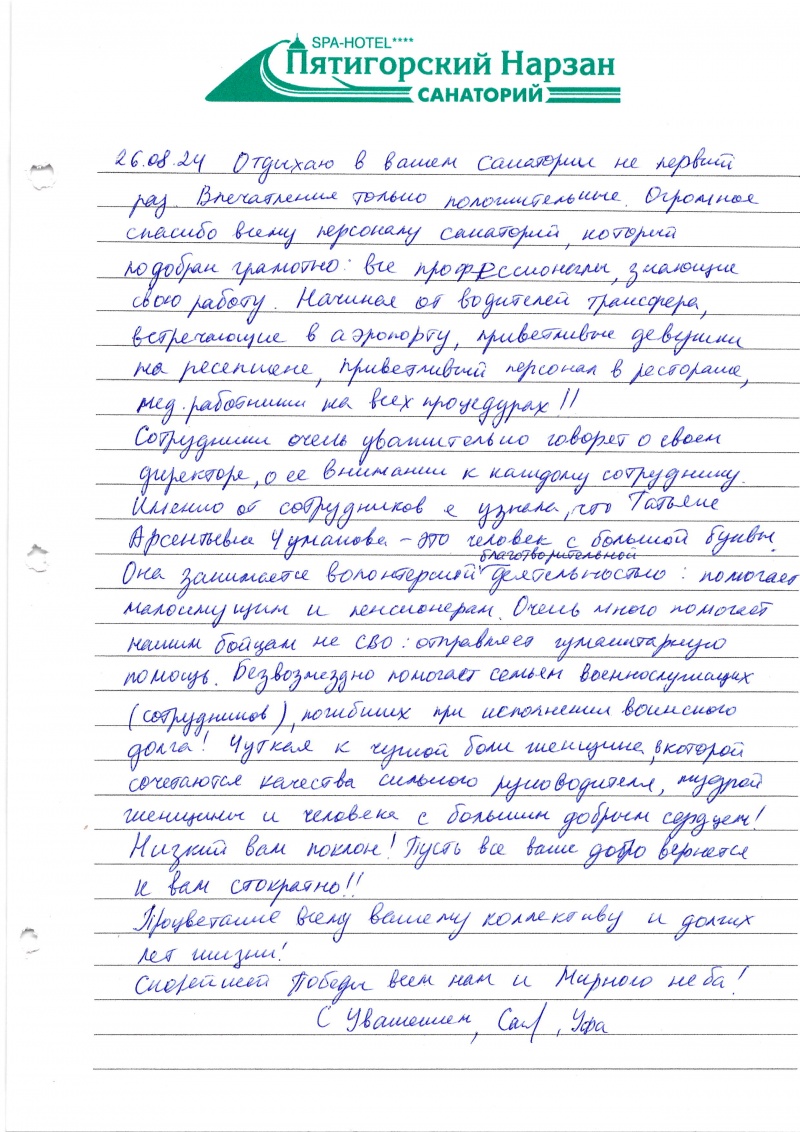 SPA-HOTEL****
Пятигорский Нарзан
САНАТОРИЙ
26.08.24 Отдыхаю в вашем санатории не первый
раз. Впечатления только положительные. Огромное
спасибо всему персоналу санаторий, который
подобран грамотно: все профессионалы, знающие
свою работу. Начиная от водителей трансфера,
встречающие в аэропорту, приветливые девушки
на ресепшене, приветливый персонал в ресторане,
мед. работники на всех процедурах!!
Сотрудники очень уважительно говорят о своем
директоре, о ее внимании к каждому сотруднику.
Именно от сотрудников я узнала, что Татьяна
Арсентьевна Чумакова - это человек с большой буквы.
благотворительной
Она занимается волонтерской деятельностью: помогает
малоимущим и пенсионерам. Очень много помогает
нашим бойцам не СВО: отправляет гуманитарную
помощь. Безвозмездно помогает семьям военнослужащих
(сотрудников), погибших при исполнении воинского
долга! Чуткая к чужой боли женщина, в которой
сочетаются качества сильного руководителя, мудрой
женщины и человека с большим добрым сердцем!
Низкий вам поклон! Пусть все ваше добро вернется
к вам стократно!!
Процветание всему вашему коллективу и долгих
лет жизни!
Скорейшей Победы всем нам и Мирного неба!
С Уважением, Уфа